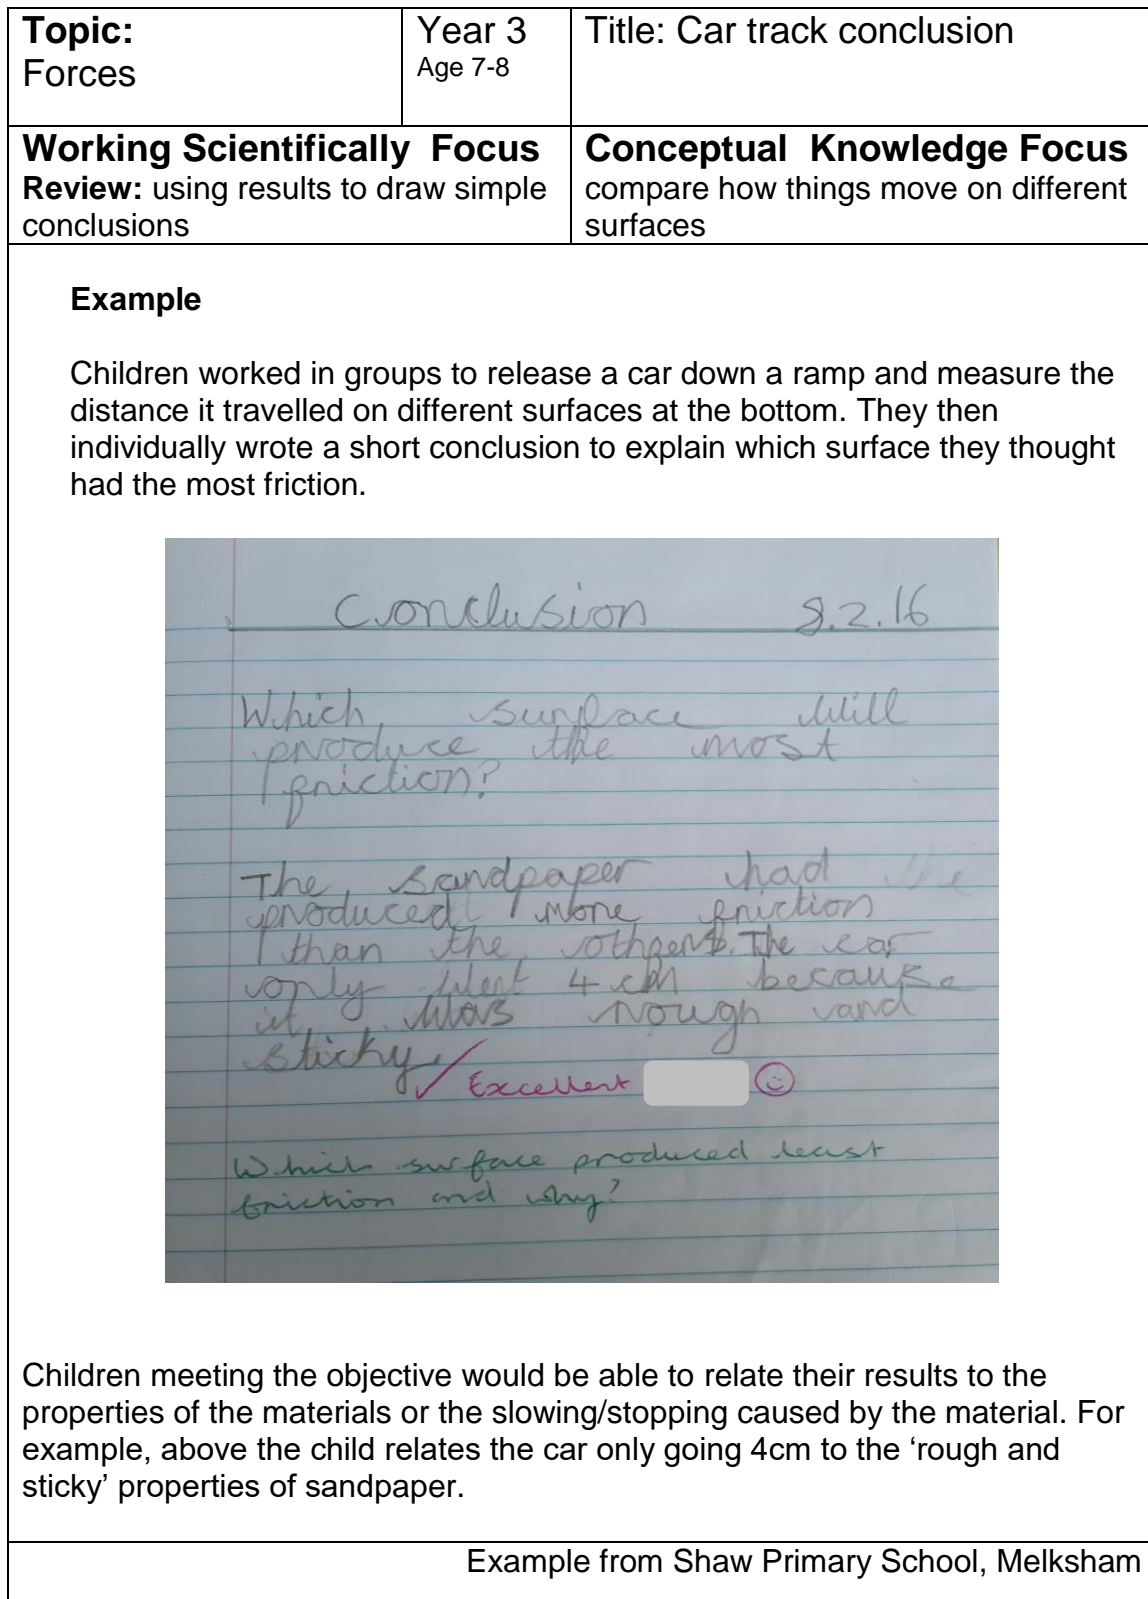 Topic:
Forces
Year 3
Age 7-8
Title: Car track conclusion
Working Scientifically Focus
Review: using results to draw simple
conclusions
Conceptual Knowledge Focus
compare how things move on different
surfaces
Example
Children worked in groups to release a car down a ramp and measure the
distance it travelled on different surfaces at the bottom. They then
individually wrote a short conclusion to explain which surface they thought
had the most friction.
Conclusion 8.2.16
Which surface will
produce the most
friction?
The sandpaper had
produced more friction
than the . The car
only went 4 cm because
it was rough and
sticky. Excellent
Which surface produced least
friction and why?
Children meeting the objective would be able to relate their results to the
properties of the materials or the slowing/stopping caused by the material. For
example, above the child relates the car only going 4cm to the ‘rough and
sticky’ properties of sandpaper.
Example from Shaw Primary School, Melksham